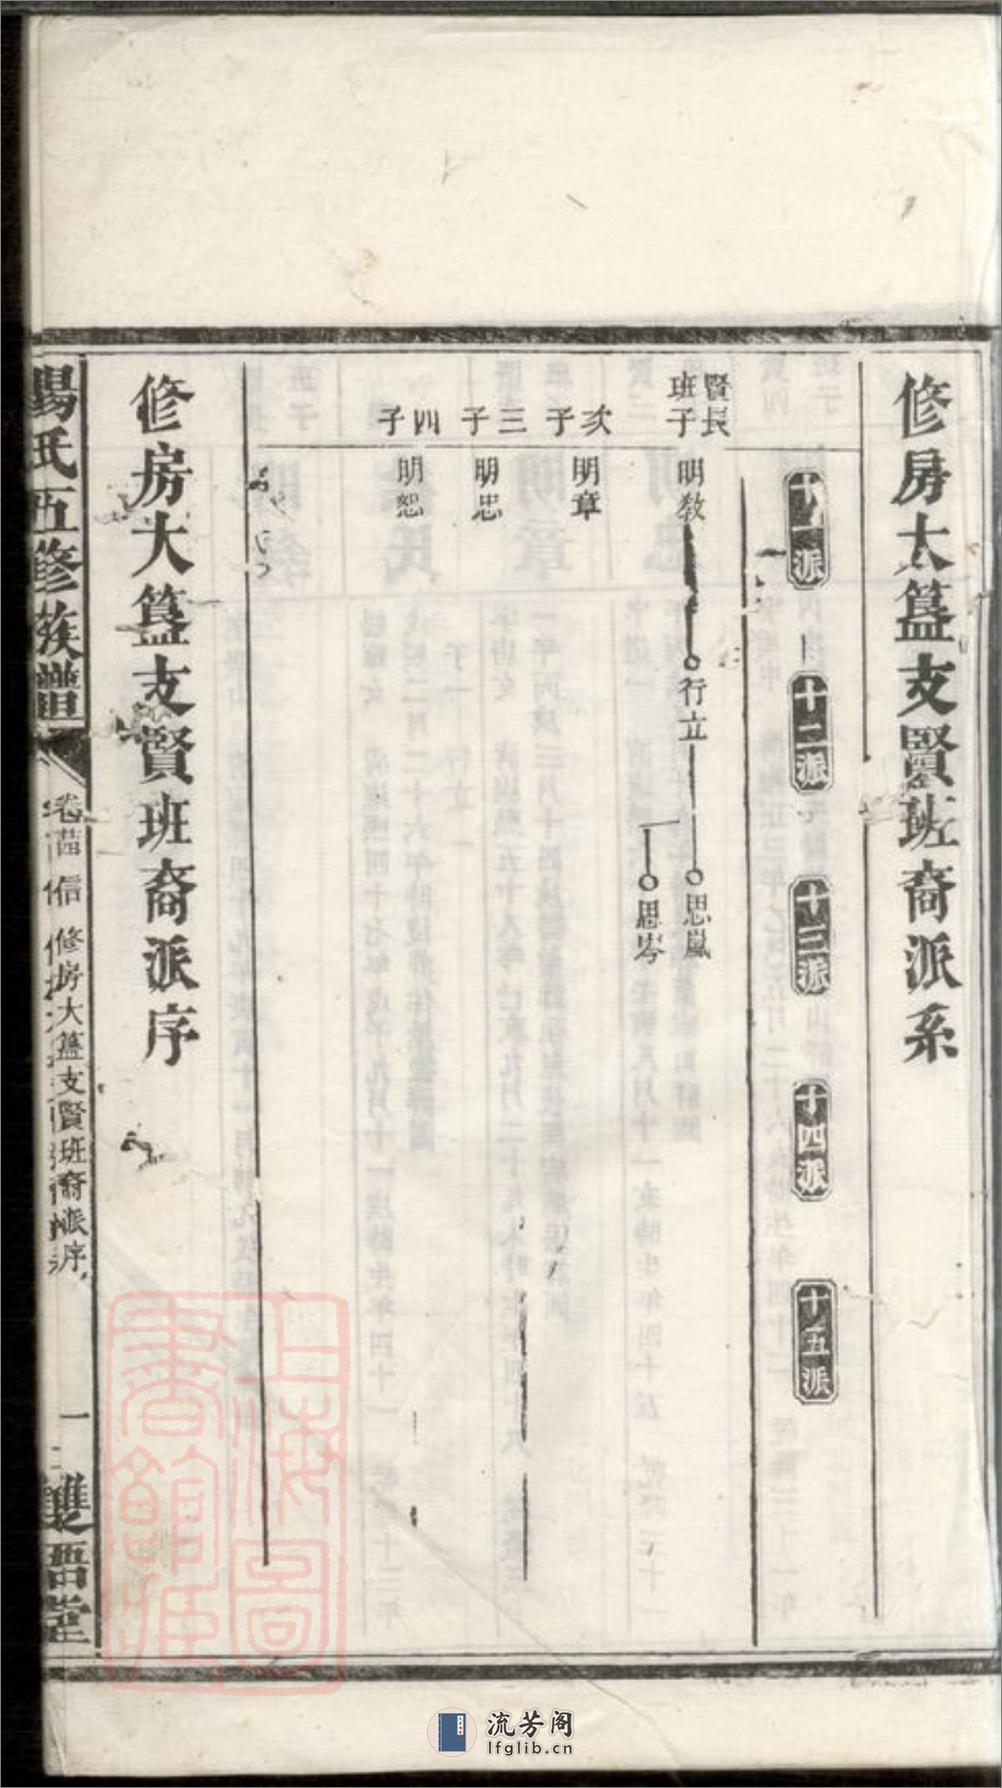 修房大簋支賢班裔派系
十一派
十二派
十三派
十四派
十五派
賢班長子
明教
行立
思嵐
思岑
次子
明章
三子
明忠
四子
明恕
修房大簋支賢班裔派序
楊氏五修族譜
信
修房大簋支賢班裔派序
一
雙語堂
上海圖書館藏
流芳阁
lfglib.cn